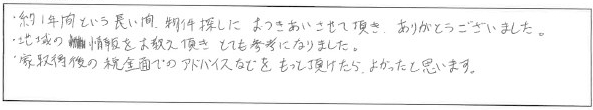 ・約1年間という長い間、物件探しにおつきあいさせて頂き、ありがとうございました。
・地域の情報をお教え頂きとても参考になりました。
・家取得後の税金面でのアドバイスなどをもっと頂けたら、よかったと思います。